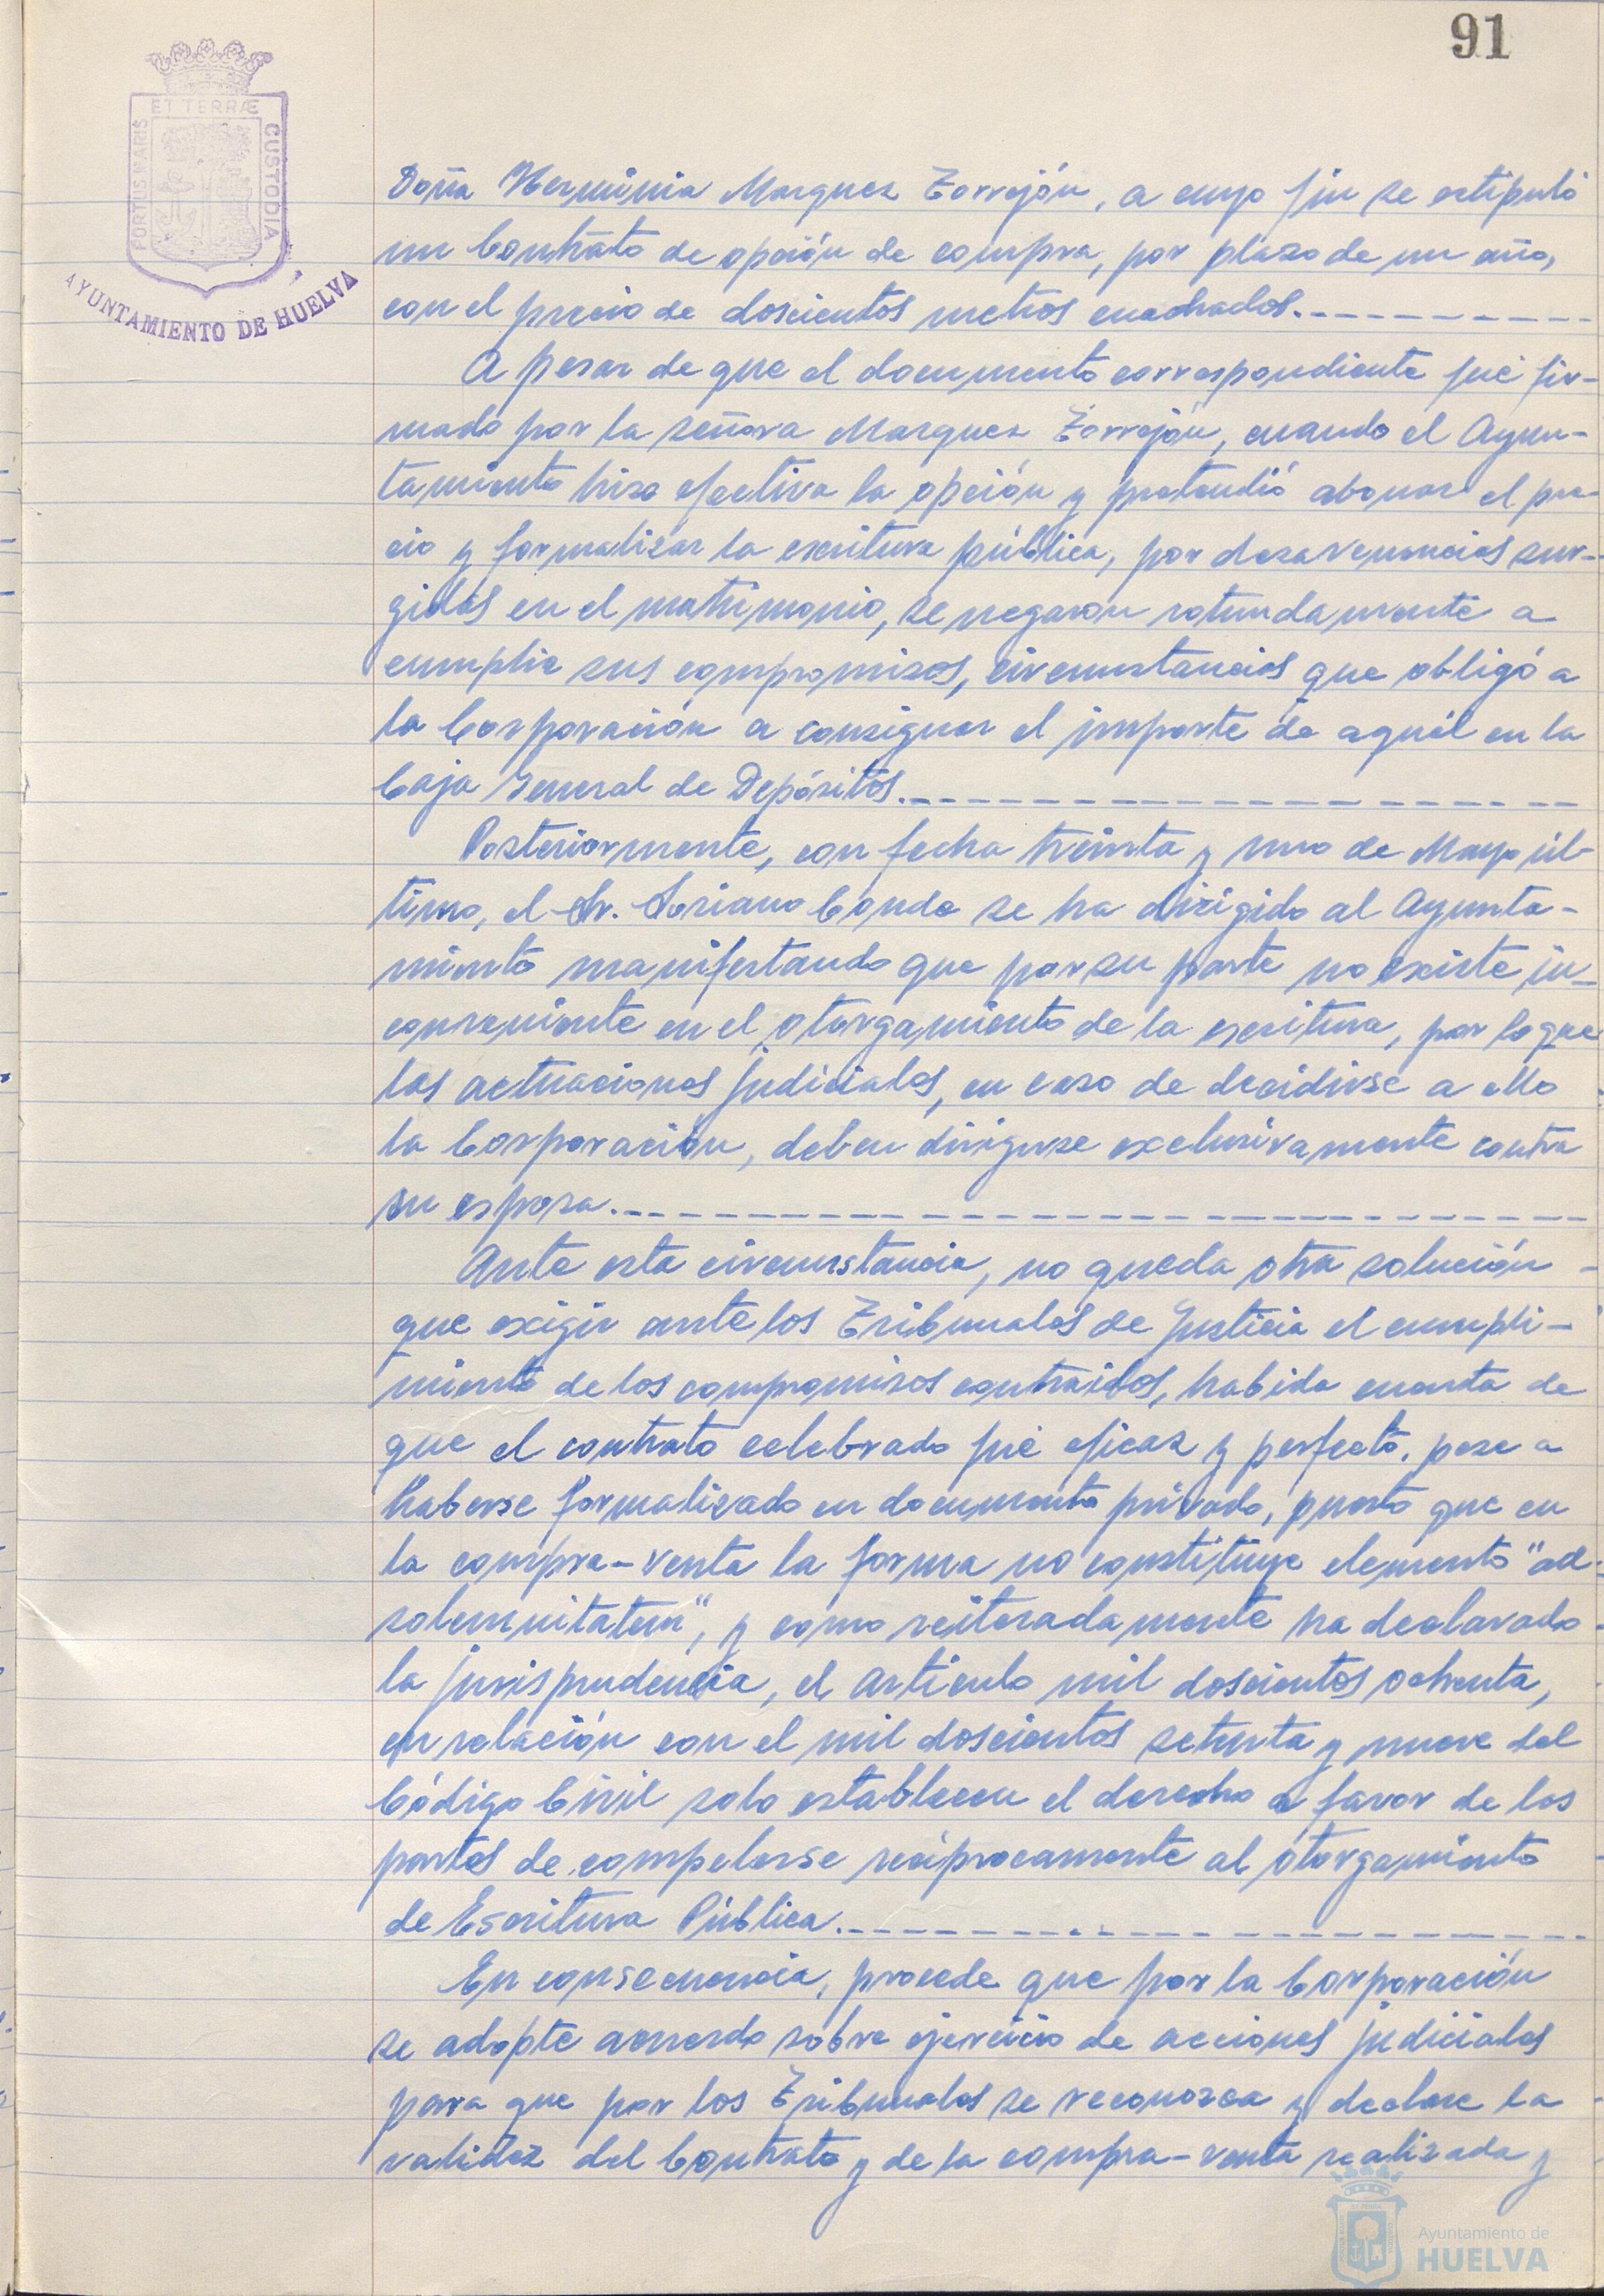 91
ET TERRÆ
PORTUS MARIS
CUSTODIA
AYUNTAMIENTO DE HUELVA
Doña Herminia Marquez Torrejón, a cuyo fin se estipuló
un Contrato de opción de compra, por plazo de un año,
con el precio de doscientos metros cuadrados.
A pesar de que el documento correspondiente fué fir-
mado por la señora Marquez Torrejón, cuando el Ayun-
tamiento hizo efectiva la opción y pretendió abonar el pre-
cio y formalizar la escritura pública, por desavenencias sur-
gidas en el matrimonio, se negaron rotundamente a
cumplir sus compromisos, circunstancias que obligó a
la Corporación a consignar el importe de aquél en la
Caja General de Depósitos.
Posteriormente, con fecha treinta y uno de Mayo úl-
timo, el Sr. Soriano Conde se ha dirigido al Ayunta-
miento manifestando que por su parte no existe in-
conveniente en el otorgamiento de la escritura, por lo que
las actuaciones judiciales, en caso de decidirse a ello
la Corporación, deben dirigirse exclusivamente contra
su esposa.
Ante esta circunstancia, no queda otra solución
que exigir ante los Tribunales de Justicia el cumpli-
miento de los compromisos contraidos, habida cuenta de
que el contrato celebrado fué eficaz y perfecto, pese a
haberse formalizado en documento privado, puesto que en
la compra-venta la forma no constituye elemento "ad-
solemnitatem", y como reiteradamente ha declarado
la jurisprudencia, el articulo mil doscientos ochenta,
en relación con el mil doscientos setenta y nueve del
Código Civil solo establecen el derecho a favor de las
partes de compelerse recíprocamente al otorgamiento
de Escritura Pública.
En consecuencia, procede que por la Corporación
se adopte acuerdo sobre ejercicio de acciones judiciales
para que por los Tribunales se reconozca y declare la
validez del Contrato y de la compra-venta realizada y
Ayuntamiento de
HUELVA